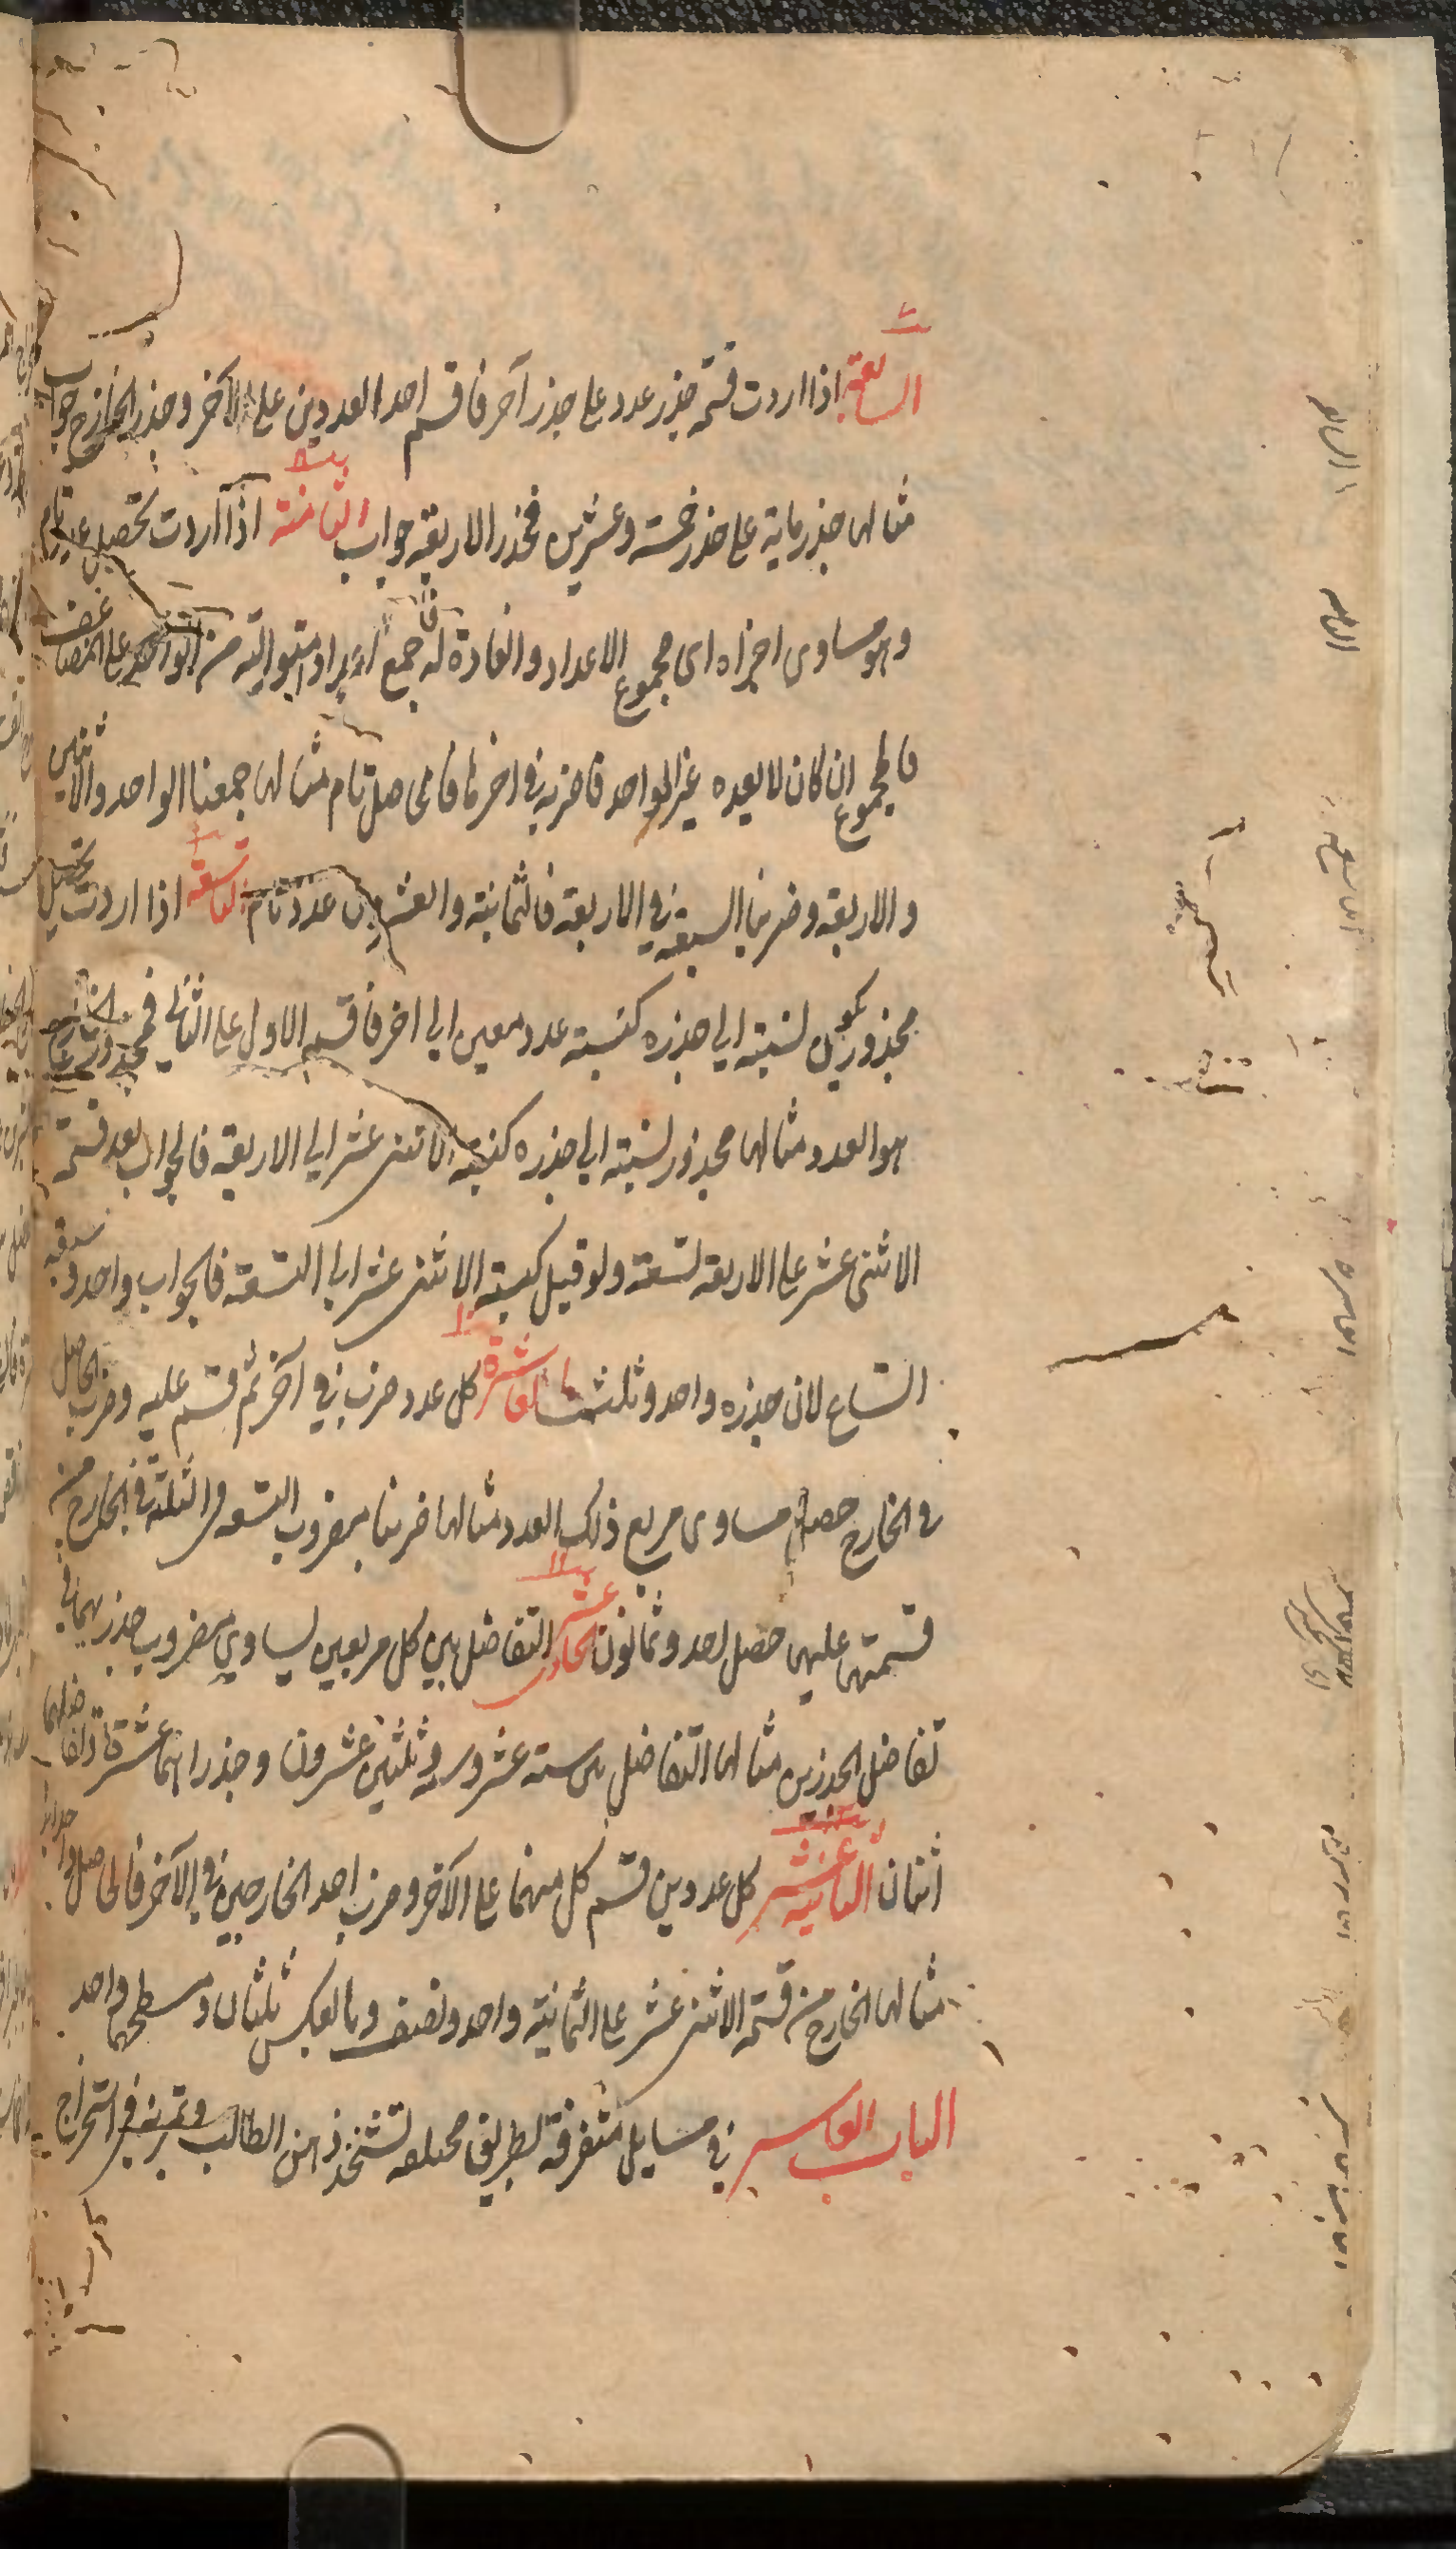 السابعة اذا اردت قسمة جذر عدد على جذر آخر فاقسم احد العددين على الآخر وجذر الخارج جواب
مثالها جذر ماية على جذر خمسة وعشرين فجذر الاربعة جواب الثامنة اذا اردت تحصيل عدد تام
وهو مساوى اجزاه اى مجموع الاعداد والعادة له فاجمع اعداد متوالية من الواحد على التضاعف
فالمجموع ان كان لا يعده غير الواحد فاضربه فى اخرها فالحاصل تام مثالها جمعنا الواحد والاثنين
والاربعة وضربنا السبعة فى الاربعة فالثمانية والعشرون عدد تام التاسعة اذا اردت تحصيل
مجذور يكون نسبته الى جذره كنسبة عدد معين الى اخر فاقسم الاول على الثانى فمجذور الخارج
هو العدد مثالها مجذور نسبته الى جذره كنسبة الاثنى عشر الى الاربعة فالجواب بعد قسمة
الاثنى عشر على الاربعة تسعة ولو قيل كنسبة الاثنى عشر الى التسعة فالجواب واحد وسبعة
اتساع لان جذره واحد وثلث العاشرة كل عدد ضرب فى آخر ثم قسم عليه وضرب الحاصل
فى الخارج حصل مساوى مربع ذلك العدد مثالها ضربنا مضروب التسعة فى الثلثة فى الخارج من
قسمتها عليها حصل احد وثمانون الحادى عشر التفاضل بين كل مربعين يساوى مضروب جذريهما فى
تفاضل الجذرين مثالها التفاضل بين ستة عشر وستة وثلثين عشرون وجذراهما عشرة وتفاضلهما
اثنان الثانية عشر كل عددين قسم كل منهما على الآخر وضرب احد الخارجين فى الآخر فالحاصل واحد ابدا
مثالها الخارج من قسمة الاثنى عشر على الثمانية واحد ونصف وبالعكس ثلثان ومسطحهما واحد
الباب العاشر فى مسايل متفرقة بطريق مختلفة تشحذ ذهن الطالب وتمرنه فى استخراج